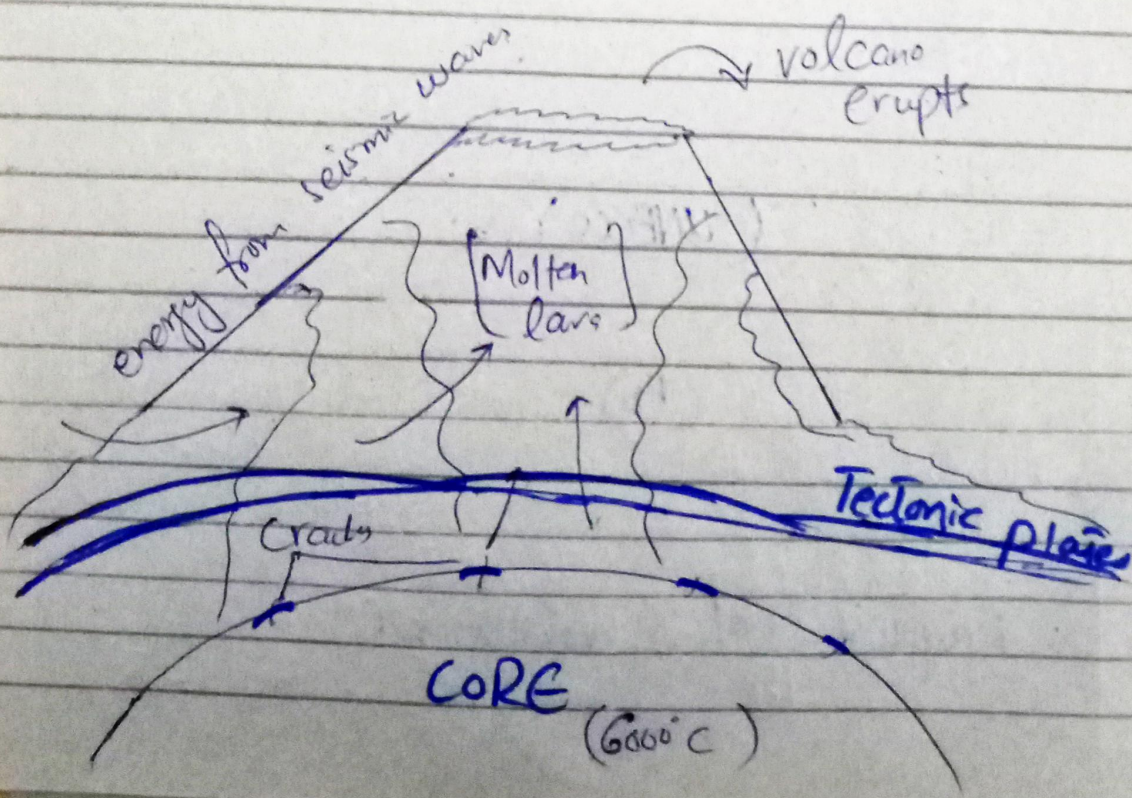 energy from seismic waves
volcano
erupts
[Molten
lava]
Tectonic plates
Cracks
CORE
(6000°C)